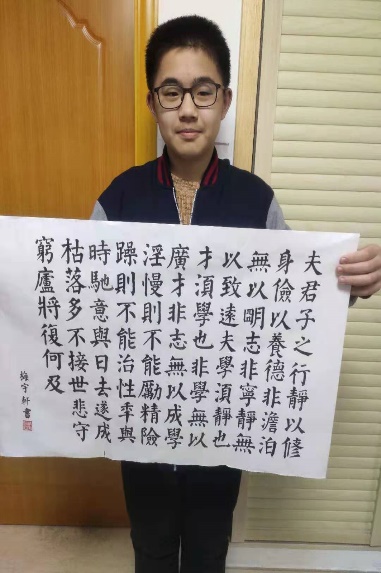 夫君子之行靜以修
身儉以養德非澹泊
無以眀志非寧靜無
以致遠夫學湏靜也
才湏學也非學無以
廣才非志無以成學
淫慢則不能勵精險
躁則不能治性年與
時馳意與日去遂成
枯落多不接世悲守
窮廬將復何及
宇軒書